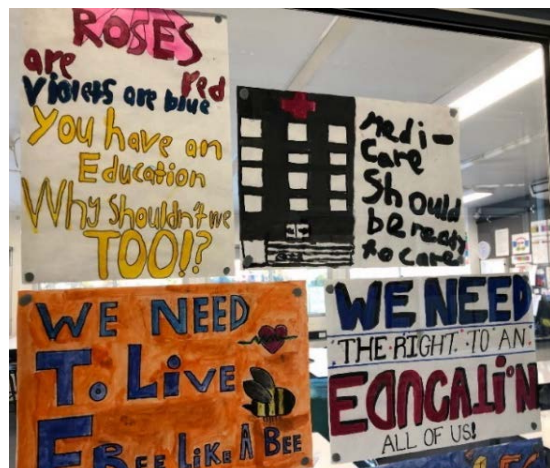 ROSES
are red
Violets are blue
You have an
Education
Why Shouldn't we
TOO!?
Medi-
Care
Should
be ready
to care
WE NEED
To LiVE
FBEE LiKE A BEE
WE NEED
THE RIGHT TO AN
EDUCATiON
ALL OF US!